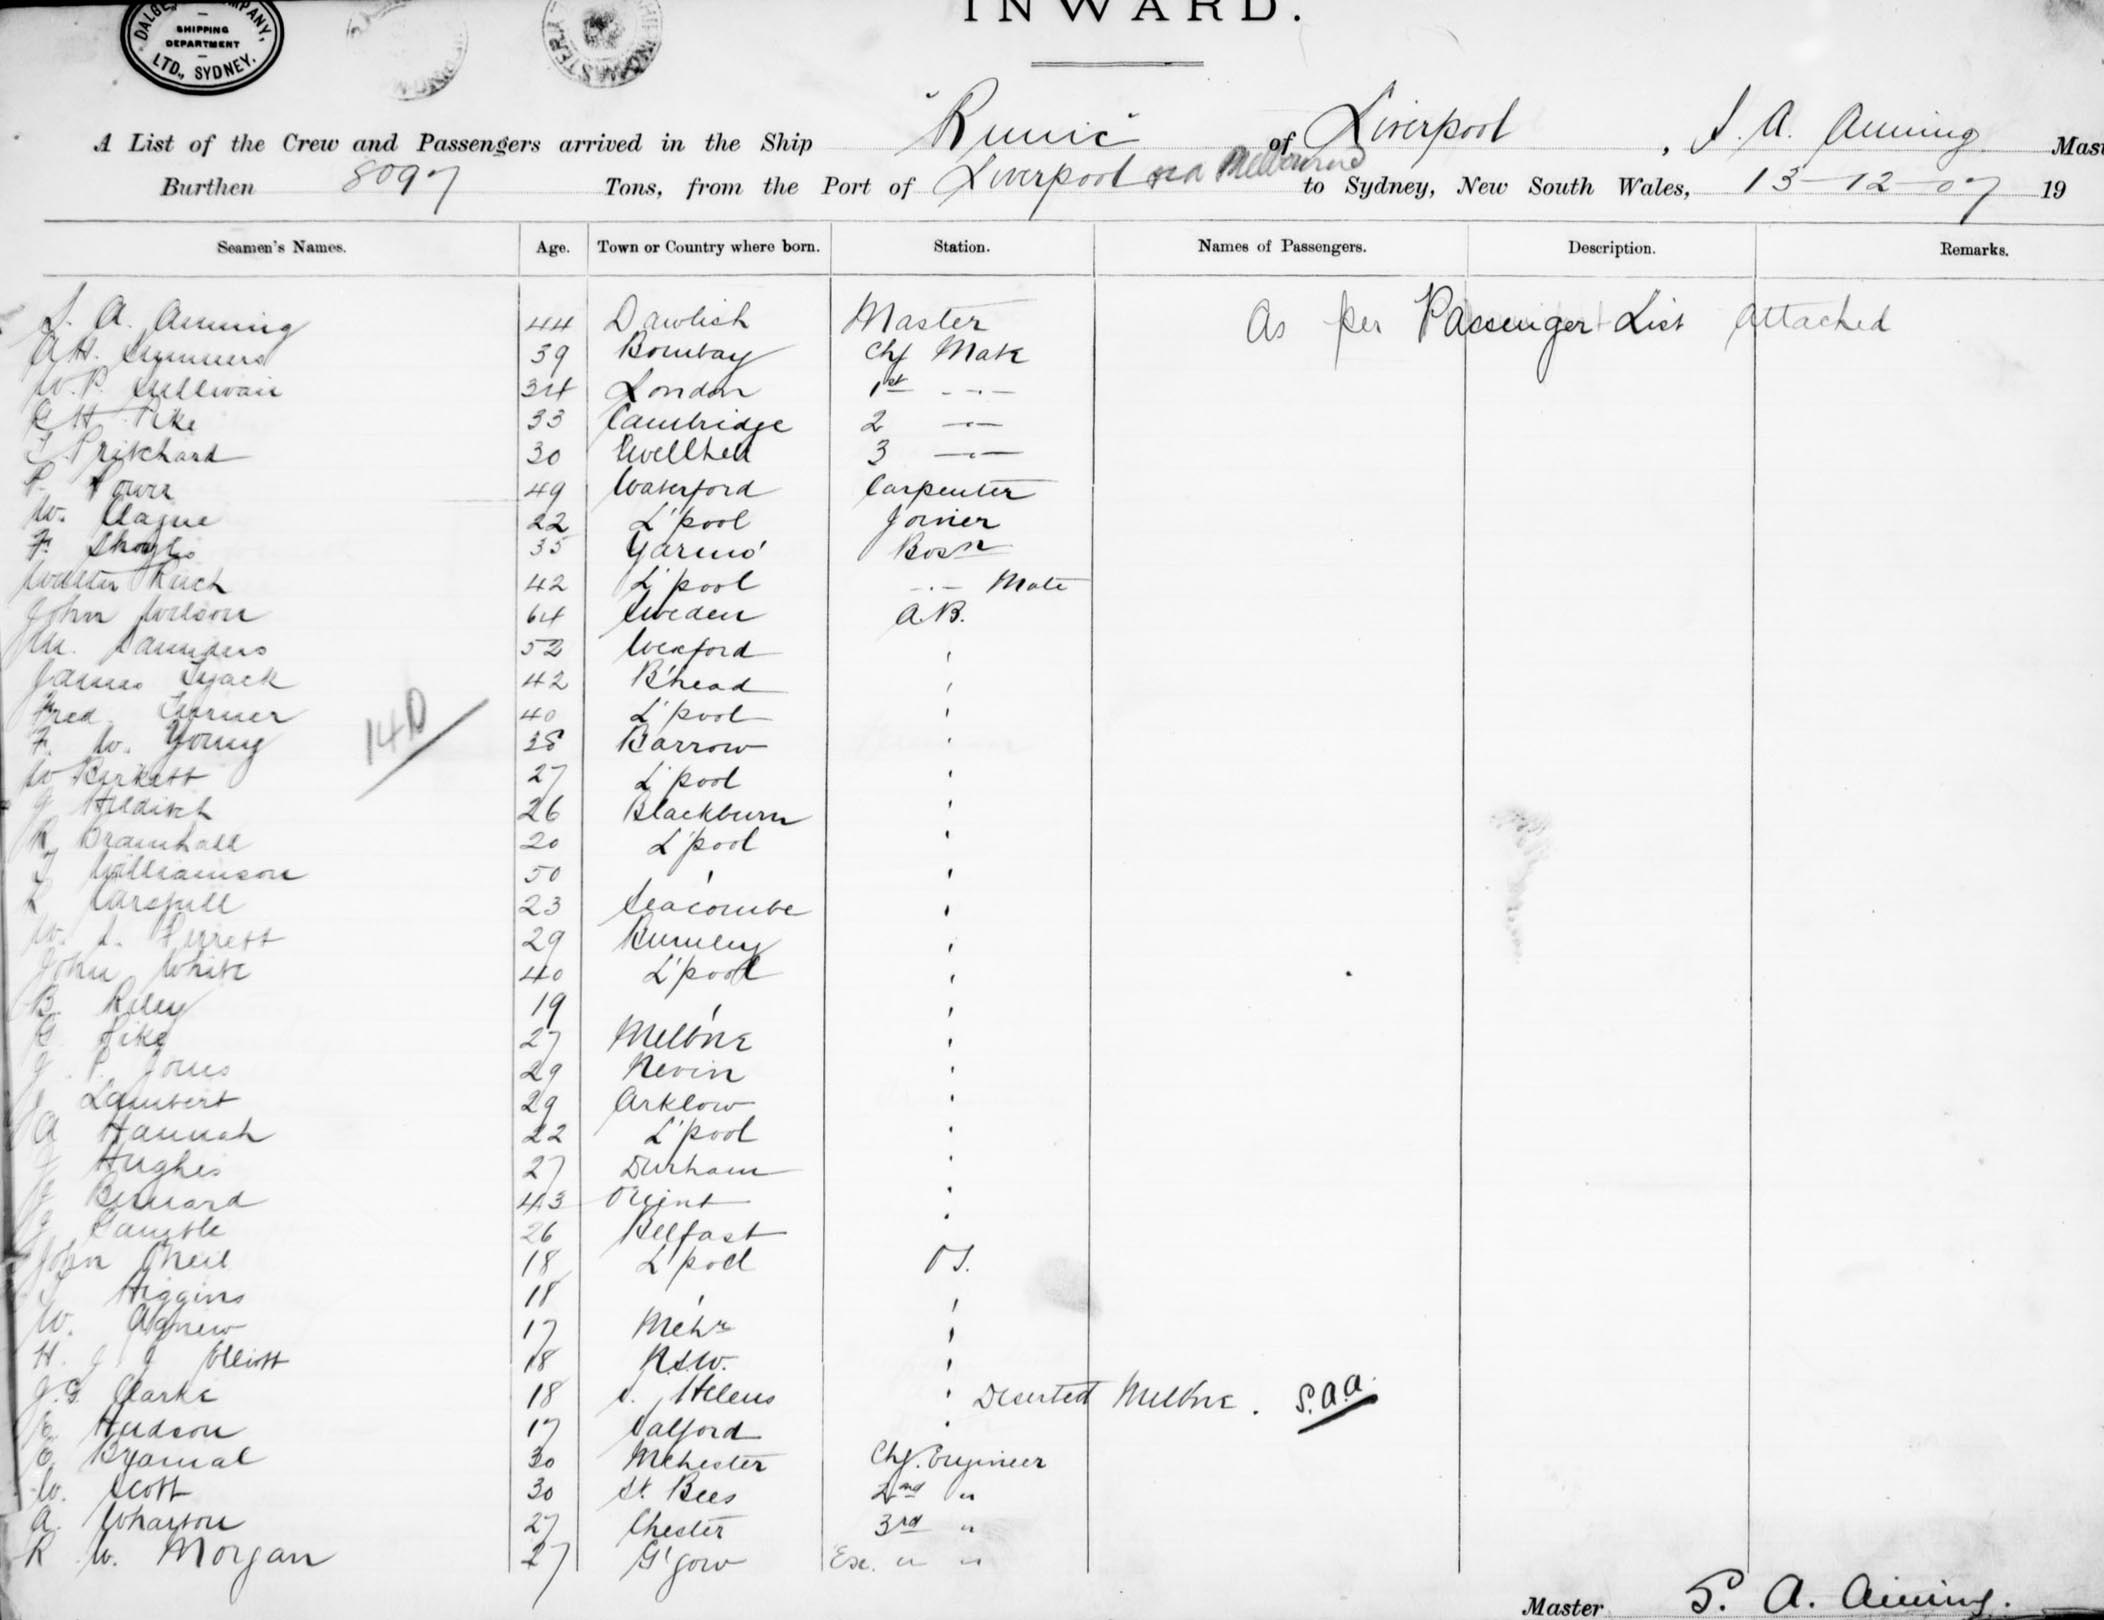 INWARD.
DALGETY COMPANY, SHIPPING DEPARTMENT LTD., SYDNEY.
A List of the Crew and Passengers arrived in the Ship "Runic" of Liverpool, S. A. Anning Mast
Burthen 8097 Tons, from the Port of Liverpool via Melbourne to Sydney, New South Wales, 13-12-07 19
Seamen's Names. Age. Town or Country where born. Station. Names of Passengers. Description. Remarks.
S. A. Anning 44 Dawlish Master As per Passenger List attached
A H. Summers 39 Bombay Chf Mate
W. P. Sullivan 34 London 1st -"-
C H Pike 33 Cambridge 2 -"-
T. Pritchard 30 3 -"-
P. Power 49 Waterford Carpenter
W. Clague 22 L'pool Joiner
F. 35 Yarmo' Bosn
Walter 42 L'pool -"- Mate
John Wilson 64 Sweden A.B.
M. Saunders 52 Wexford '
James Tyack 42 B'head '
Fred Turner 40 L'pool '
F. W. Young 38 Barrow '
14D
W Birkett 27 L'pool '
J Hilditch 26 Blackburn '
R Bramhall 20 L'pool '
T Williamson 50 ' '
L 23 Seacombe '
W. S. Perrett 29 Burnley '
John White 40 L'pool '
B Riley 19 ' '
27 Melb'ne '
J. P. Jones 29 Nevin '
J Lambert 29 Arklow '
A Hannah 22 L'pool '
J Hughes 27 Durham '
J Bernard 43 '
J Gamble 26 Belfast '
John ONeil 18 L'pool O S.
T Higgins 18 ' '
W. Agnew 17 M'chr '
H. J J Elliott 18 N.S.W. '
J. G. Clarke 18 S. Helens ' Deserted Melb'ne. S.A.A.
E. Hudson 17 Salford '
E. 30 M'chester Chf. Engineer
W. Scott 30 St. Bees 2nd "
A. Wharton 27 Chester 3rd "
R. W. Morgan 27 G'gow Ex. " "
Master S. A. Anning.